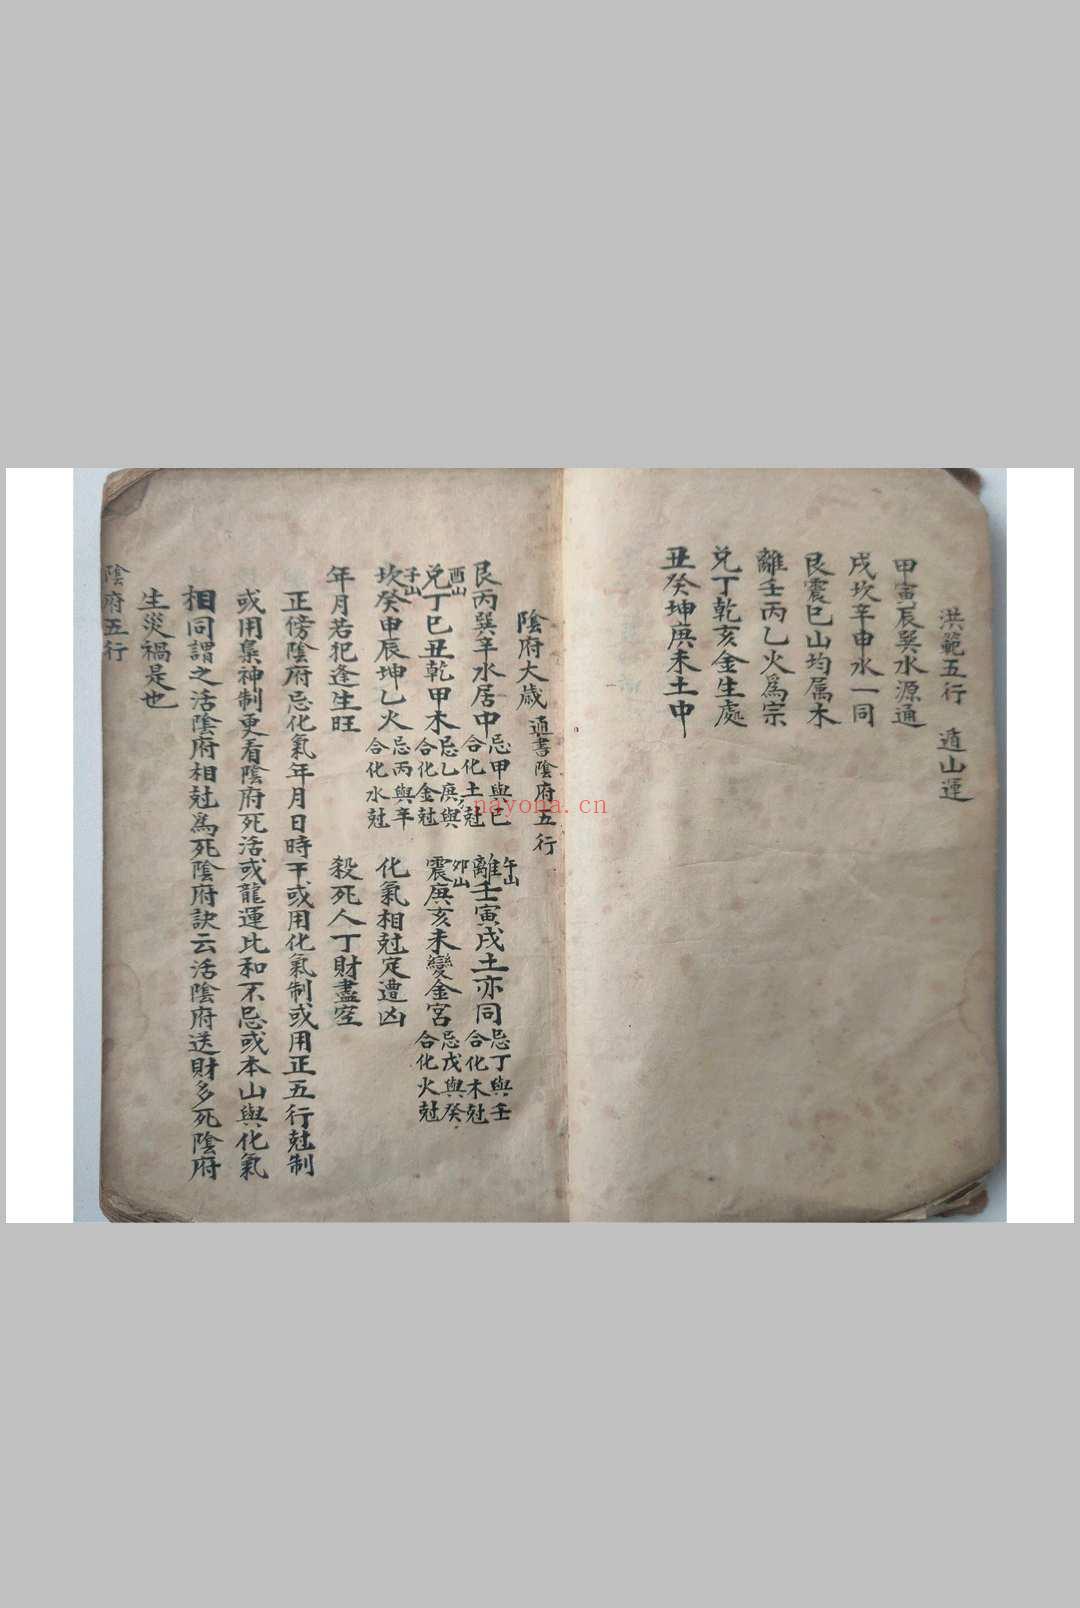 洪範五行　遁山運
甲寅辰巽水源通
戌坎辛申水一同
艮震巳山均属木
離壬丙乙火爲宗
兌丁乾亥金生處
丑癸坤庚未土中
陰府大歲 通書陰府五行
艮丙巽辛水居中 忌甲與巳合化土尅 午山離壬寅戌土亦同 忌丁與壬合化木尅
酉山兌丁巳丑乾甲木 忌乙庚與合化金尅 卯山震庚亥未變金宮 忌戊與癸合化火尅
子山坎癸申辰坤乙火 忌丙與辛合化水尅 化氣相尅定遭凶
年月若犯逢生旺 殺死人丁財盡空
正傍陰府忌化氣年月日時干或用化氣制或用正五行尅制
或用梟神制更看陰府死活或龍運比和不忌或本山與化氣
相同謂之活陰府相尅為死陰府訣云活陰府送財多死陰府
生災禍是也
陰府五行
nayona.cn